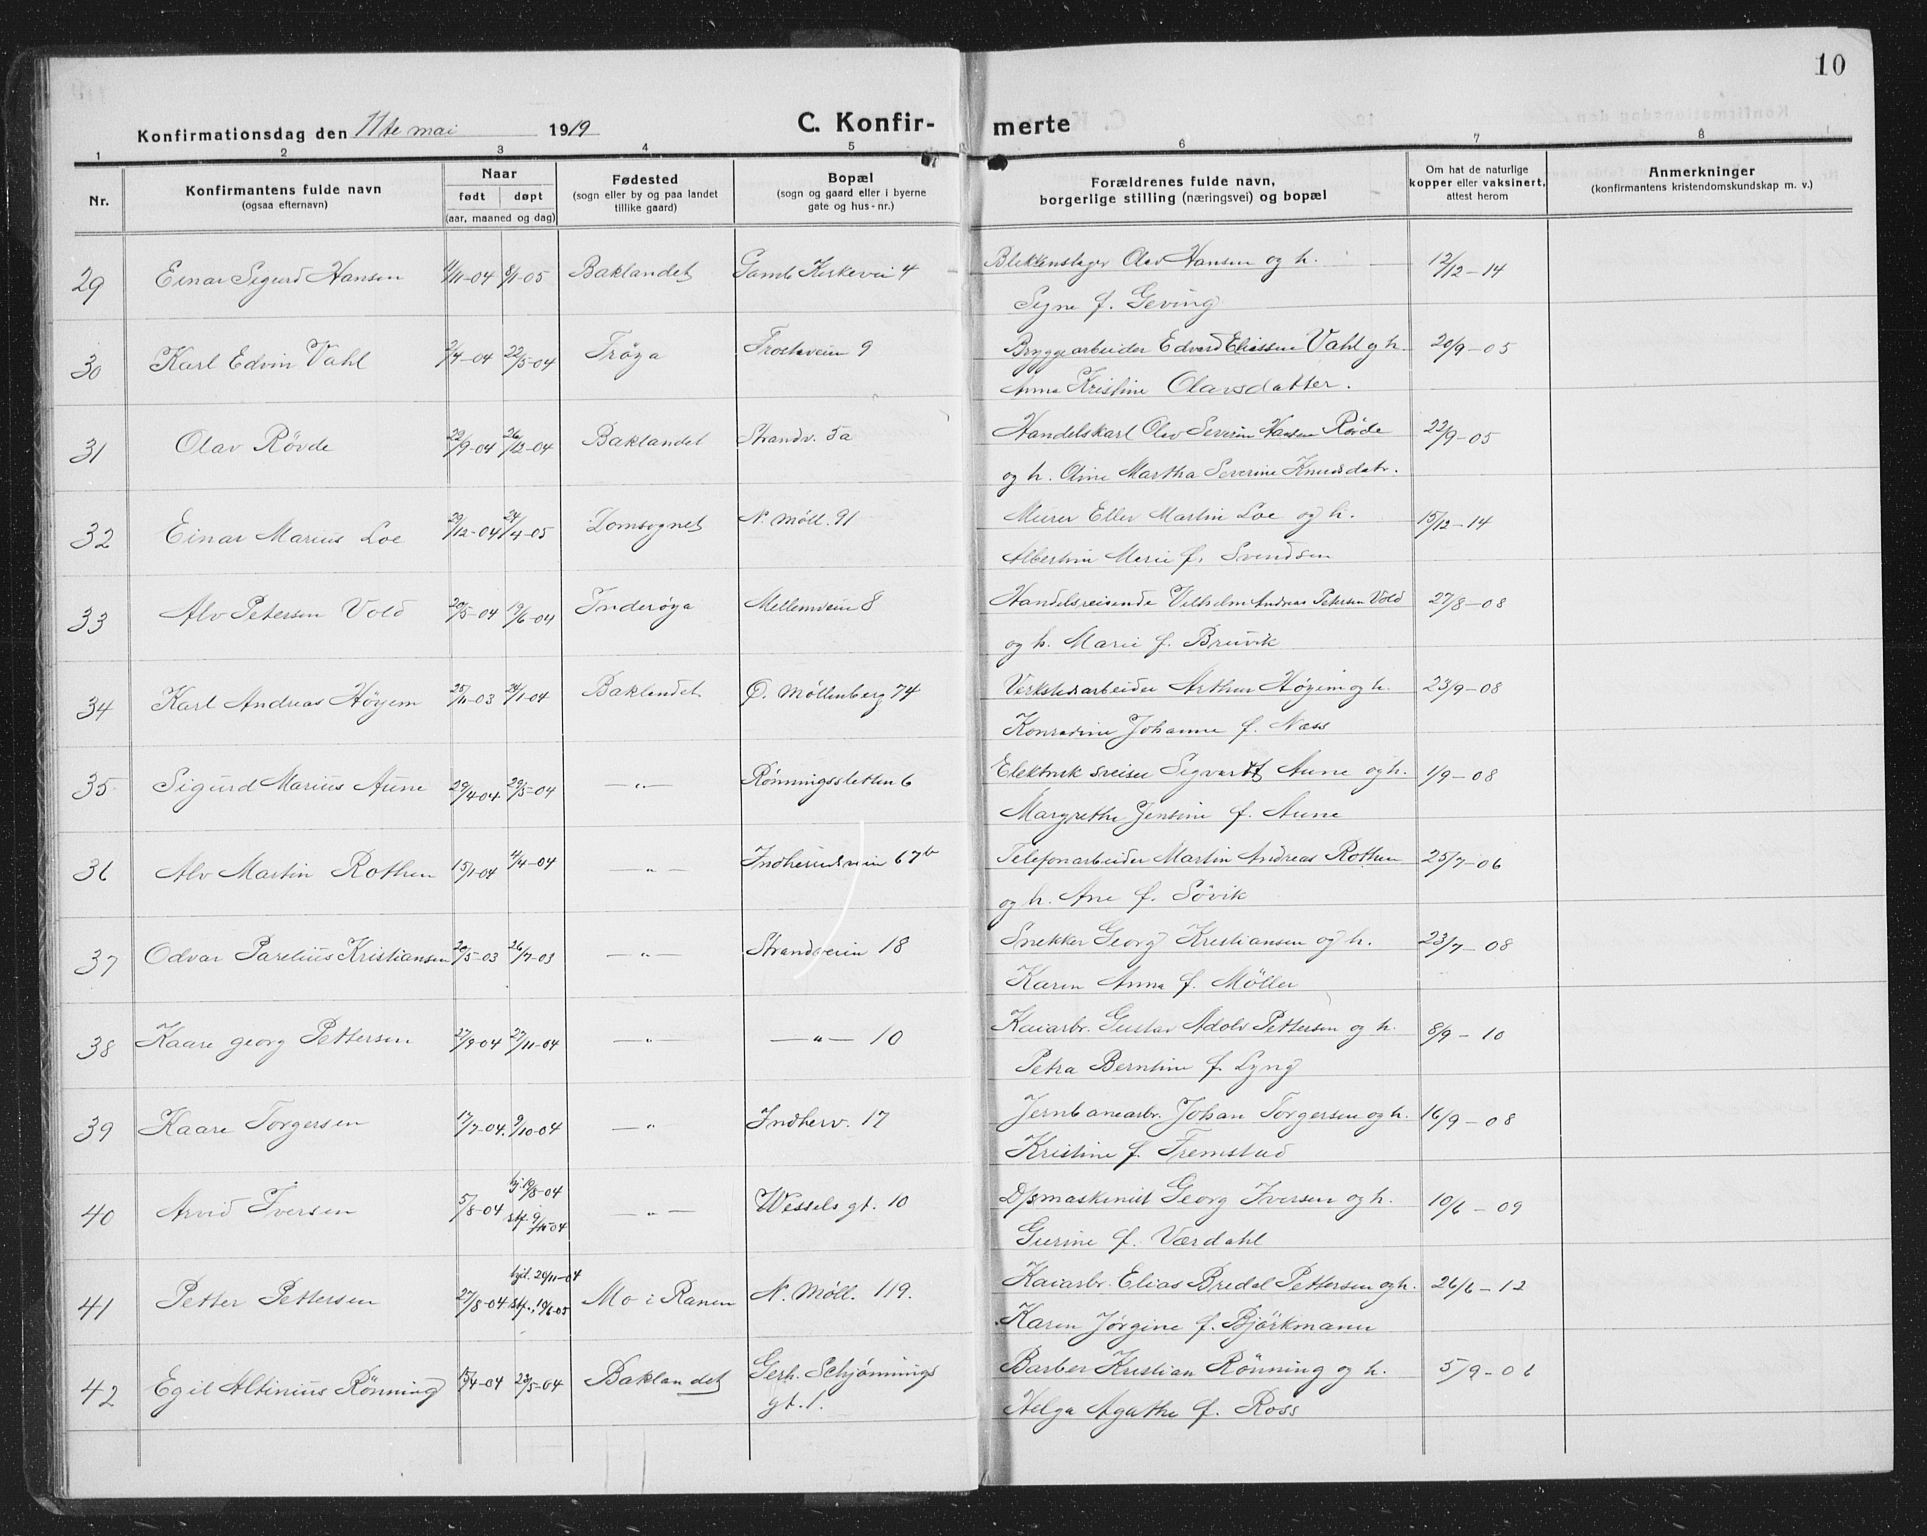 10
Konfirmationsdag den 11te mai 1919 C. Konfirmerte
1 2 3 4 5 6 7 8
Nr. Konfirmantens fulde navn (ogsaa efternavn) Naar født døpt (aar, maaned og dag) Fødested (sogn eller by og paa landet tillike gaard) Bopæl (sogn og gaard eller i byerne gate og hus-nr.) Forældrenes fulde navn, borgerlige stilling (næringsvei) og bopæl Om hat de naturlige kopper eller vaksinert, attest herom Anmerkninger (konfirmantens kristendomskundskap m. v.)
29 Einar Sigurd Hansen /11-04 /1-05 Baklandet Gamle Kirkevei 4 Blikkenslager Olav Hansen og h. 12/12-14
Signe f. Geving
30 Karl Edvin Vahl 2/4-04 22/5-04 Frøya Frostaveien 9 Bryggearbeider Edvard Eliassen Vahl og h. 20/9-05
Anna Kristine Olavsdatter.
31 Olav Røvde 22/9-04 26/12-04 Baklandet Strandv. 5a Handelskarl Olav Severin Hansen Røvde 22/9-05
og h. Oline Martha Severine Knudsdatr.
32 Einar Marius Loe 29/12-04 24/4-05 Domsognet N. Møll. 91 Murer Eller Martin Loe og h. 15/12-14
Albertine Marie f. Svendsen
33 Alv Petersen Vold 20/5-04 19/6-04 Inderøya Mellemveien 8 Handelsreisende Vilhelm Andreas Petersen Vold 27/8-08
og h. Marie f. Bruvik
34 Karl Andreas Høyem 25/11-03 24/1-04 Baklandet Ø. Møllenberg 74 Verkstedsarbeider Arthur Høyem og h. 23/9-08
Konradine Johanne f. Næss
35 Sigurd Marius Aune 29/4-04 29/5-04 —"— Rønningsletten 6 Elektrik sveiser Sigvardt Aune og h. 1/9-08
Margrethe Jensine f. Aune
36 Alv Martin Rothen 15/1-04 4/4-04 —"— Indherredsveien 67b Telefonarbeider Martin Andreas Rothen 25/7-06
og h. Ane f. Søvik
37 Odvar Parelius Kristiansen 20/5-03 26/7-03 —"— Strandveien 18 Snekker Georg Kristiansen og h. 23/7-08
Karen Anna f. Møller
38 Kaare georg Pettersen 27/9-04 27/11-04 —"— —"— 10 Kaiarbr. Gustav Adolv Pettersen og h. 8/9-10
Petra Berntine f. Lyng
39 Kaare Torgersen 17/7-04 9/10-04 —"— Indherv. 17 Jernbanearbr. Johan Torgersen og h. 16/9-08
Kristine f. Fremstad
40 Arvid Iversen 5/8-04 hj. 12/8-04 stf. 9/10-04 —"— Wessels gt. 10 D/smaskinist Georg Iversen og h. 10/6-09
Gurine f. Værdahl
41 Petter Pettersen 27/8-04 hjd. 20/11-04 stf., 19/6-05 Mo i Ranen N. Møll. 119. Kaiarbr. Elias Bredal Pettersen og h. 26/6-12
Karen Jørgine f. Björkmann
42 Egil Altinius Rönning 15/4-04 23/5-04 Baklandet Gerh. Schjønnings gt. 1. Barber Kristian Rönning og h. 5/9-06
Helga Agathe f. Ross